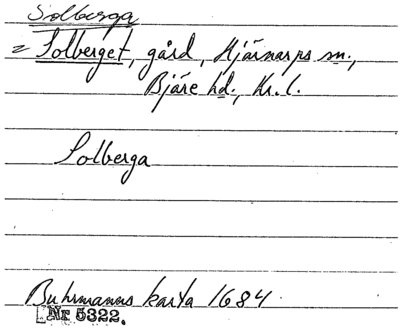 Solberga
= Solberget, gård, Hjärnarps sn.,
Bjäre hd., Kr. l.
Solberga
Buhrmanns karta 1684.
Nr 5322.